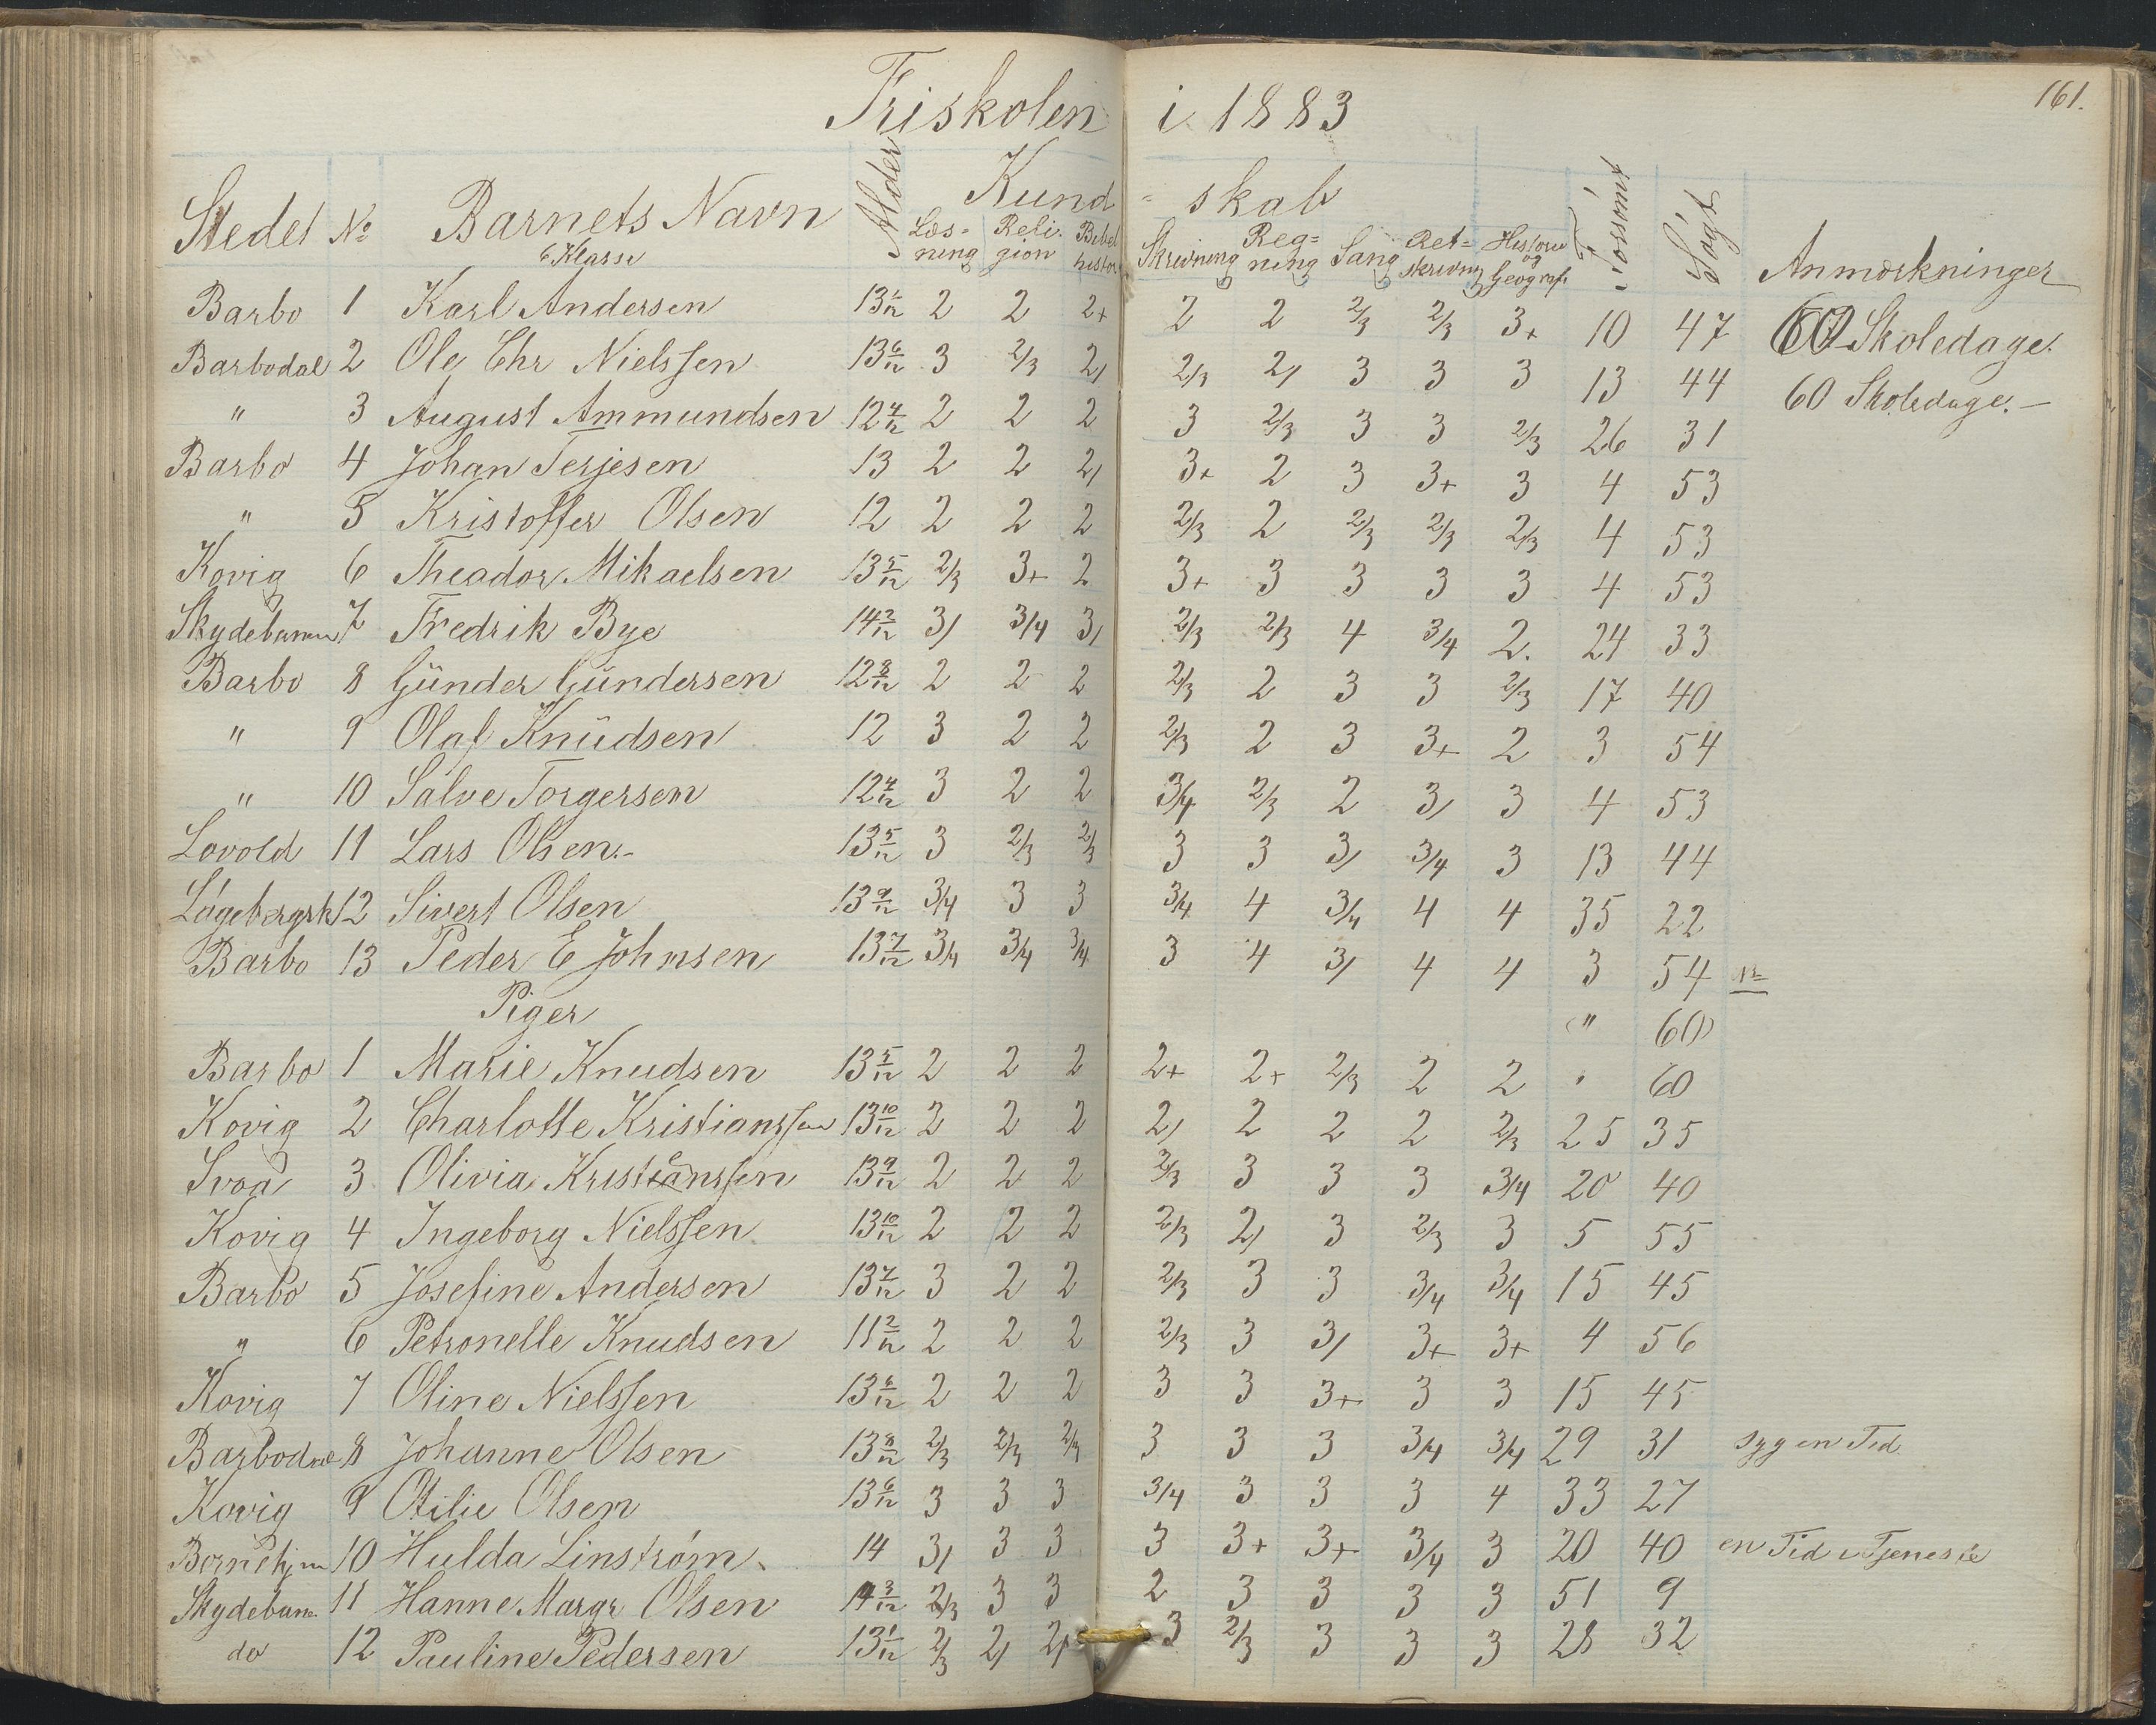 161.
Friskolen i 1883
Stedet No Barnets Navn Alder Kund = skab Forsømt Søgt Anmærkninger
6 Klasse Læs= ning Reli. gion Bibel histor Skrivning Reg= ning Sang Ret= skrivning Historie og Geografi
Barbo 1 Karl Andersen 13 1/12 2 2 2+ 2 2 2/3 2/3 3+ 10 47 60 Skoledage.
Barbodal 2 Ole Chr Nielssen 13 6/12 3 2/3 2/ 2/3 2/ 3 3 3 13 44 60 Skoledage.—
" 3 August Ammundsen 12 4/12 2 2 2 3 2/3 3 3 2/3 26 31
Barbo 4 Johan Terjesen 13 2 2 2/ 3+ 2 3 3+ 3 4 53
" 5 Kristoffer Olsen 12 2 2 2 2/3 2 2/3 2/3 2/3 4 53
Kovig 6 Theador Mikaelsen 13 5/12 2/3 3+ 2 3+ 3 3 3 3 4 53
Skydebanen 7 Fredrik Bye 14 2/12 3/ 3/4 3/ 2/3 2/3 4 3/4 2. 24 33
Barbo 8 Günder Gündersen 12 8/12 2 2 2 2/3 2 3 3 2/3 17 40
" 9 Olaf Knüdsen 12 3 2 2 2/3 2 3 3+ 2 3 54
" 10 Salve Torgersen 12 4/12 3 2 2 3/4 2/3 2 3/ 3 4 53
Lovold 11 Lars Olsen.- 13 5/12 3 2/3 2/3 3 3 3/ 3/4 3 13 44
Lágebergsk 12 Sivert Olsen 13 9/12 3/4 3 3 3/4 4 3/4 4 4 35 22
Barbo 13 Peder E Johnsen 13 7/12 3/4 3/4 3/4 3 4 3/ 4 4 3 54
Piger (" 60)
Barbo 1 Marie Knudsen 13 5/12 2 2 2 2+ 2+ 2/3 2 2 " 60
Kovig 2 Charlotte Kristianssen 13 10/12 2 2 2 2/ 2 2 2 2/3 25 35
Svoa 3 Olivia Kristenssen 13 9/12 2 2 2 2/3 3 3 3 3/4 20 40
Kovig 4 Ingeborg Nielssen. 13 10/12 2 2 2 2/3 2/ 3 2/3 3 5 55
Barbo 5 Josefine Andersen 13 7/12 3 2 2 2/3 3 3 3/4 3/4 15 45
" 6 Petronelle Knudsen 11 2/12 2 2 2 2/3 3 3/ 3+ 3+ 4 56
Kovig 7 Oline Nielssen 13 6/12 2 2 2 3 3 3+ 3 3 15 45
Barbodal 8 Johanne Olsen 13 8/12 2/3 2/3 2/3 3 3 3 3/4 3/4 29 31 syg en Tid
Kovig 9 Otilie Olsen 13 6/12 3 3 3 3/4 3 3 3 4 33 27
Bornehjm 10 Hulda Linstróm. 14 3/ 3 3 3 3+ 3+ 3/4 3 20 40 en Tid i Tjeneste
Skydeban. 11 Hanne Margr Olsen 14 3/12 2/3 3 3 2 3 3 3 3 51 9
do 12 Pauline Pedersen 13 1/12 2/3 2/ 2/ 3 2/3 3 3 3 28 32